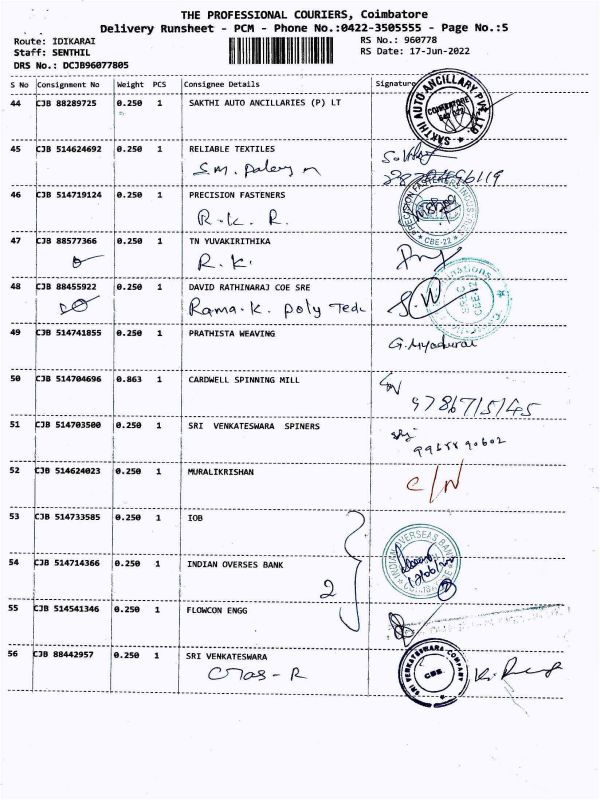 THE PROFESSIONAL COURIERS, Coimbatore
Delivery Runsheet - PCM - Phone No.:0422-3505555 - Page No.:5
Route: IDIKARAI RS No.: 960778
Staff: SENTHIL RS Date: 17-Jun-2022
DRS No.: DCJB96077805
S No Consignment No Weight PCS Consignee Details Signature
44 CJB 88289725 0.250 1 SAKTHI AUTO ANCILLARIES (P) LT
SAKTHI AUTO ANCILLARY PVT. LTD.
COIMBATORE
45 CJB 514624692 0.250 1 RELIABLE TEXTILES
46 CJB 514719124 0.250 1 PRECISION FASTENERS
R.K. R.
PRECISION FASTENERS
CBE-22
47 CJB 88577366 0.250 1 TN YUVAKIRITHIKA
R.K.
48 CJB 88455922 0.250 1 DAVID RATHINARAJ COE SRE
Rama.K. Poly Tech
49 CJB 514741855 0.250 1 PRATHISTA WEAVING
50 CJB 514704696 0.863 1 CARDWELL SPINNING MILL
9786715145
51 CJB 514703500 0.250 1 SRI VENKATESWARA SPINERS
52 CJB 514624023 0.250 1 MURALIKRISHAN
C/N
53 CJB 514733585 0.250 1 IOB
INDIAN OVERSEAS BANK
54 CJB 514714366 0.250 1 INDIAN OVERSES BANK
2
55 CJB 514541346 0.250 1 FLOWCON ENGG
56 CJB 88442957 0.250 1 SRI VENKATESWARA
SRI VENKATESWARA COMPANY
CBE.